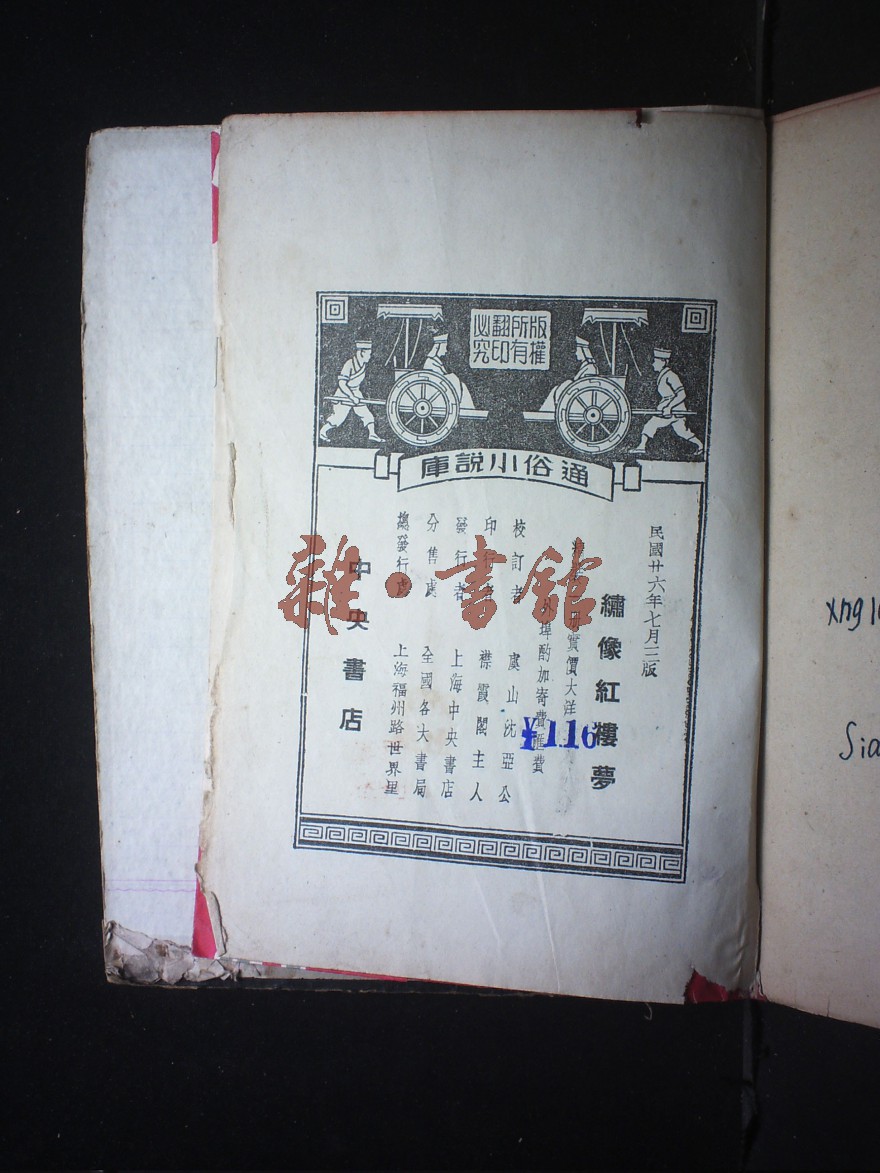 版權
所有
翻印
必究
通俗小說庫
民國廿六年七月三版
繡像紅樓夢
實價大洋
外埠酌加寄費匯費
¥1.16
校訂者 虞山沈亞公
印行者 襟霞閣主人
發行者 上海中央書店
分售處 全國各大書局
總發行處 上海福州路世界里
中央書店
雜·書館
xng
Sia